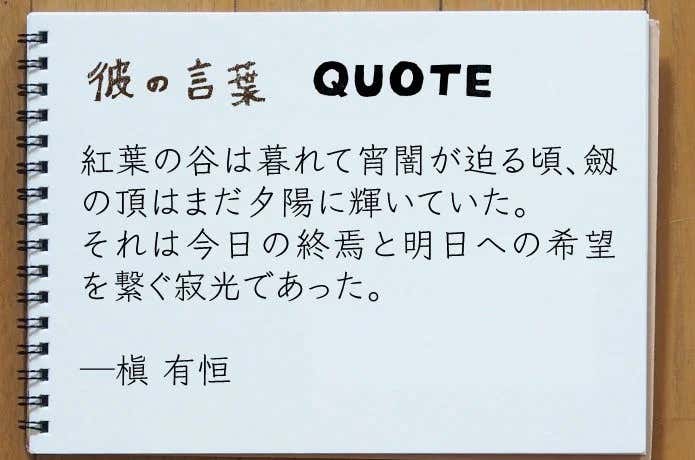 彼の言葉 QUOTE
紅葉の谷は暮れて宵闇が迫る頃、劔
の頂はまだ夕陽に輝いていた。
それは今日の終焉と明日への希望
を繋ぐ寂光であった。
―槇 有恒